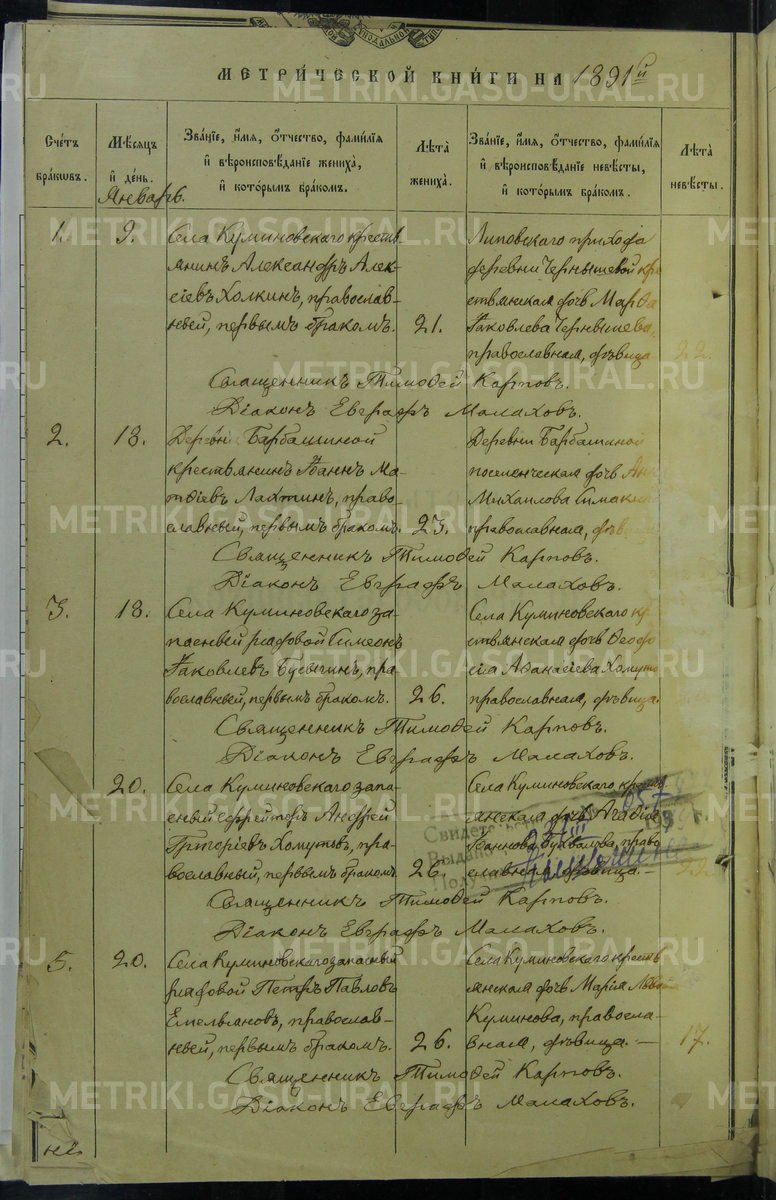 МЕТРИ́ЧЕСКОЙ КНИ́ГИ НА 1891й
Сче́тъ бра́кѡвъ.
Мѣ́сяцъ и҆ де́нь.
Зва́нїе, и҆́мя, ѻ҆́тчество, фами́лїя и҆ вѣроисповѣ́данїе жениха̀, и҆ кото́рымъ бра́комъ.
Лѣ́та жениха̀.
Зва́нїе, и҆́мя, ѻ҆́тчество, фами́лїя и҆ вѣроисповѣ́данїе невѣ́сты, и҆ кото́рымъ бра́комъ.
Лѣ́та невѣ́сты.
Январь.
1.
9.
Села Куминовскаго крестья
янинъ Александръ Алек-
сіевъ Холкинъ, православ-
ный, первымъ бракомъ.
21.
Липовскаго прихода
деревни Чернышевой кре
стьянская дочь Марѳа
Іаковлева Чернышева,
православная, дѣвица
22.
Священникъ Тимоѳей Карповъ.
Діаконъ Евграфъ Малаховъ.
2.
18.
Деревни Барбашиной
крестьянинъ Іоаннъ Ма-
тѳіевъ Лахтинъ, право-
славный, первымъ бракомъ.
23.
Деревни Барбашиной
поселенческая дочь
Михаилова
православная,
Священникъ Тимоѳей Карповъ.
Діаконъ Евграфъ Малаховъ.
3.
18.
Села Куминовскаго за-
пасный рядовой Симеонъ
Іаковлевъ Бусыгинъ, пра-
вославный, первымъ бракомъ.
26.
Села Куминовскаго кр
стьянская дочь Ѳеодо
сія Аѳанасіева Хомуто
православная, дѣвица.
Священникъ Тимоѳей Карповъ.
Діаконъ Евграфъ Малаховъ.
20.
Села Куминовскаго запа-
сный ефрейторъ Андрей
Григоріевъ Хомутовъ, пра-
вославный, первымъ бракомъ.
26.
Села Куминовскаго крестья
янская дочь Агаѳія
Іоаннова право
славная, дѣвица.
22.
Свидетел
Выдано
Полу
Священникъ Тимоѳей Карповъ.
Діаконъ Евграфъ Малаховъ.
5.
20.
Села Куминовскаго запасный
рядовой Петръ Павловъ
Емельяновъ, православ-
ный, первымъ бракомъ.
26.
Села Куминовскаго кресть
янская дочь Марія
Куминова, правосла-
вная, дѣвица.
17.
Священникъ Тимоѳей Карповъ.
Діаконъ Евграфъ Малаховъ.
METRIKI.GASO-URAL.RU